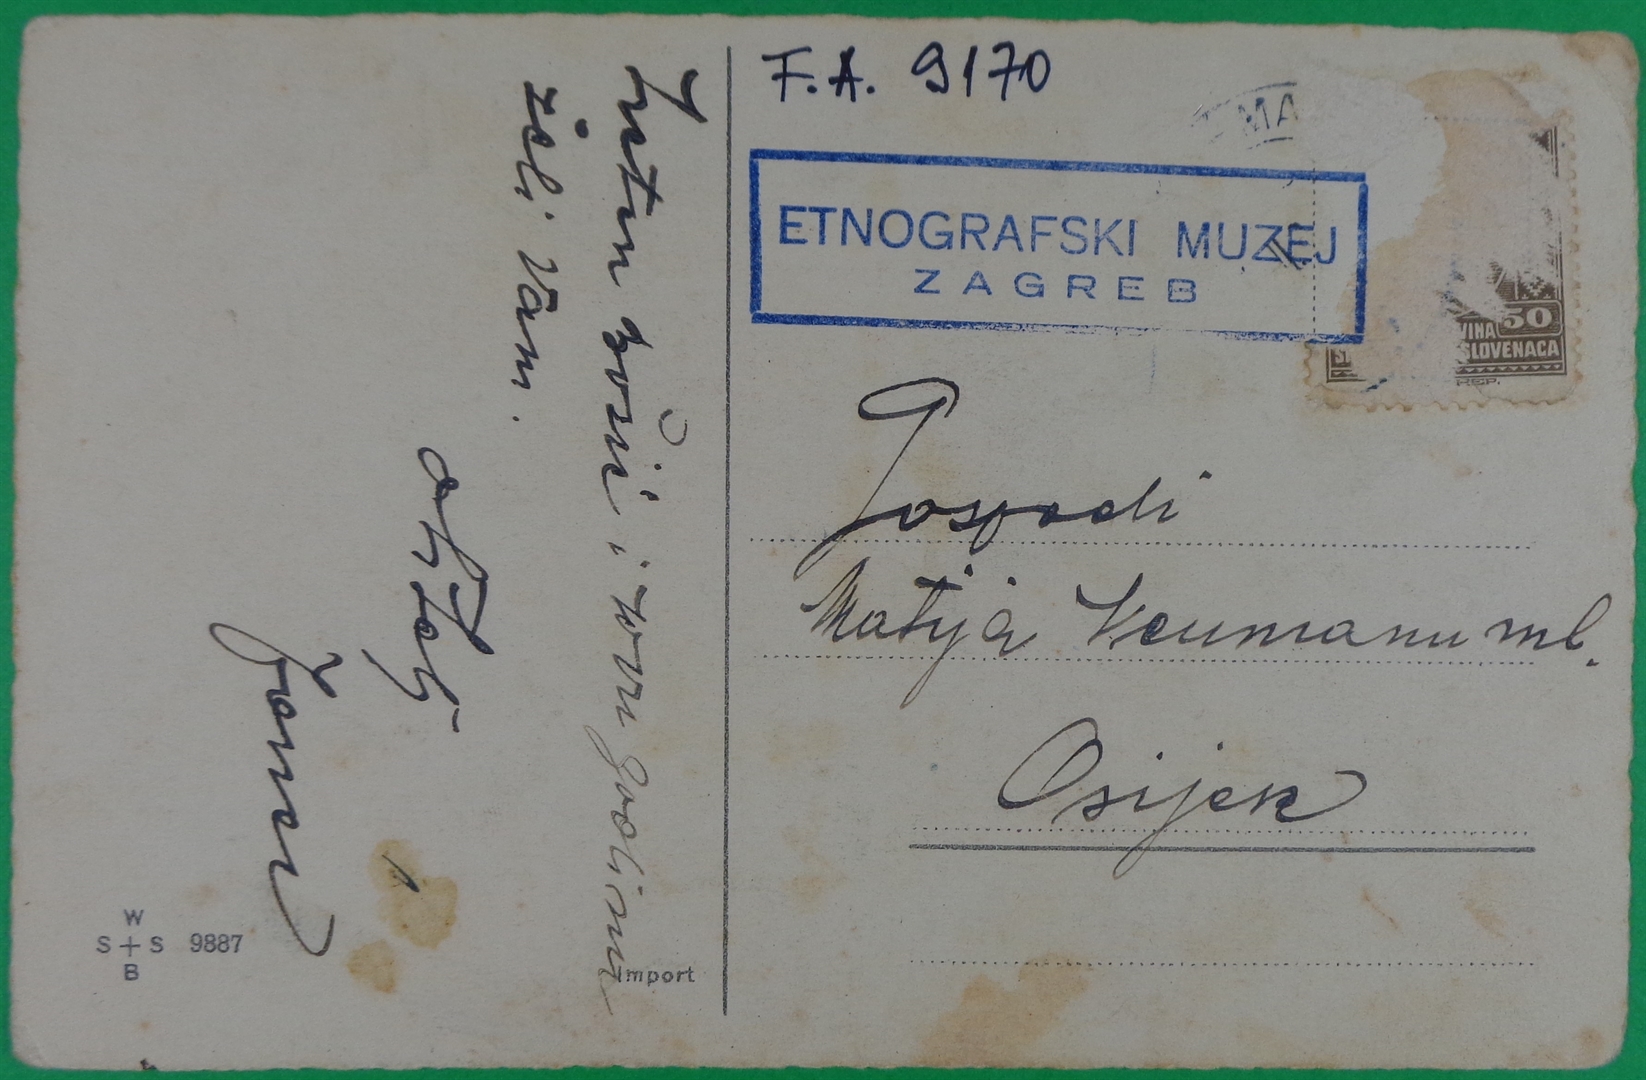 F.A. 9170
MA
ETNOGRAFSKI MUZEJ
ZAGREB
50
VINA
SLOVENACA
REP.
Gospodi
Matija Neumann ml.
Osijek
Sretan božić i novu godinu
želi Vam
W
S + S 9887
B
Import